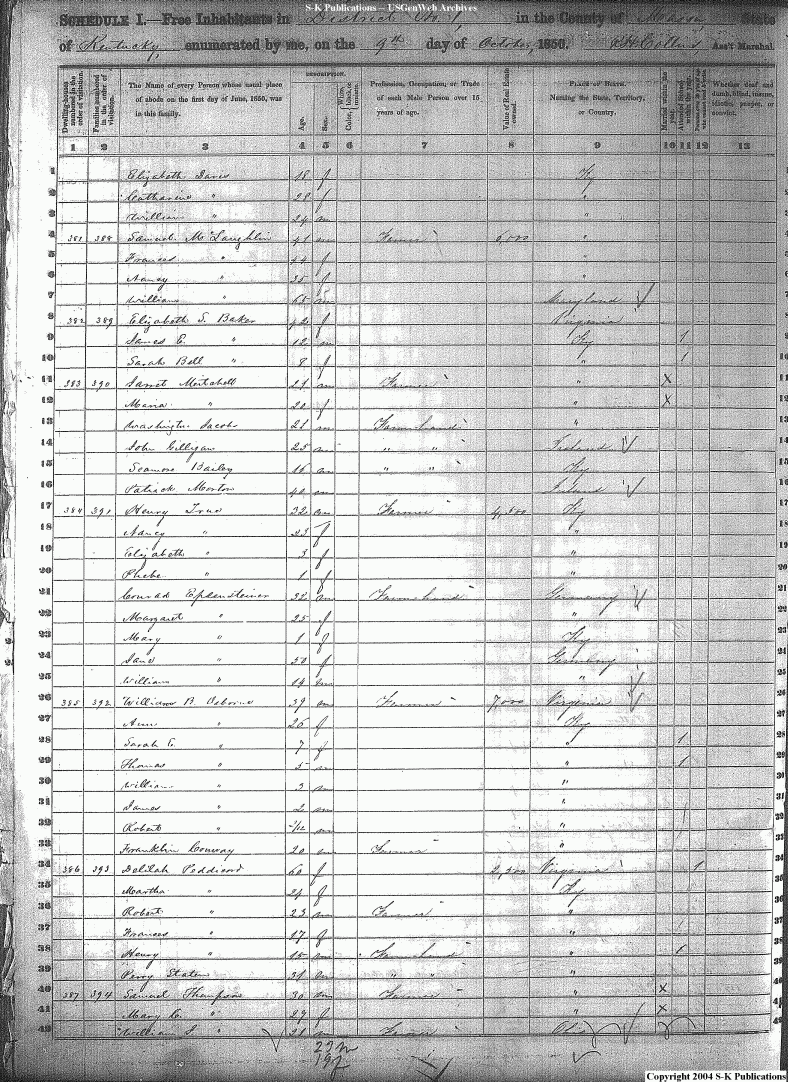 S-K Publications -- USGenWeb Archives
SCHEDULE I.—Free Inhabitants in District No. 1, in the County of Mason State
of Kentucky enumerated by me, on the 9th day of October, 1850. Ass't Marshal.
Dwelling-houses numbered in the order of visitation.
Families numbered in the order of visitation.
The Name of every Person whose usual place of abode on the first day of June, 1850, was in this family.
DESCRIPTION.
Age.
Sex.
White, Color, black, or mulatto.
Profession, Occupation, or Trade of each Male Person over 15 years of age.
Value of Real Estate owned.
PLACE OF BIRTH. Naming the State, Territory, or Country.
Married within the year.
Attended School within the year.
Whether deaf and dumb, blind, insane, idiotic, pauper, or convict.
1 2 3 4 5 6 7 8 9 10 11 12 13
1 Elizabeth Davis 18 f Ky 1
2 Catharine " 28 f " 2
3 William " 24 m " 3
4 381 388 Samuel McLaughlin 41 m Farmer 6,000 " 4
5 Frances " 44 f " 5
6 Nancy " 35 f " 6
7 William " 65 m Maryland 7
8 382 389 Elizabeth S. Baker 42 f Virginia 8
9 James E. " 12 m Ky 1 9
10 Sarah Bell " 8 f " 1 10
11 383 390 Mitchell 21 m Farmer " X 11
12 Maria " 20 f " X 12
13 Washington Jacobs 21 m Farmhand " 13
14 John Gilligan 25 m " " Ireland 14
15 Bailey 16 m " " Ky 15
16 Patrick Morton 40 m Ireland 16
17 384 391 Henry True 32 m Farmer 4,500 Ky 17
18 Nancy " 23 f " 18
19 Elizabeth " 3 f " 19
20 Phebe " 1 f " 20
21 Conrad Eplensteiner 32 m Farmhand Germany 21
22 Margaret " 25 f " 22
23 Mary " 1 f Ky 23
24 Jane " 50 f Germany 24
25 William " 14 m " 25
26 385 392 William B. Osborne 39 m Farmer 7,000 Virginia 26
27 Ann " 26 f Ky 27
28 Sarah E. " 7 f " 1 28
29 Thomas " 5 m " 1 29
30 William " 3 m " 30
31 James " 2 m " 31
32 Robert " /12 m " 32
33 Franklin Conway 20 m Farmer " 33
34 386 393 Delilah Peddicord 60 f 2,500 Virginia 1 34
35 Martha " 24 f Ky 35
36 Robert " 23 m Farmer " 36
37 Frances " 17 f " 37
38 Henry " 15 m Farmhand " 1 38
39 Perry Staten 31 m " " " 39
40 387 394 Samuel Thompson 30 m Farmer " X 40
41 Mary C. " 29 f " X 41
42 William J. " 21 m Farmer Ohio 42
23 m
19 f
Copyright 2004 S-K Publications